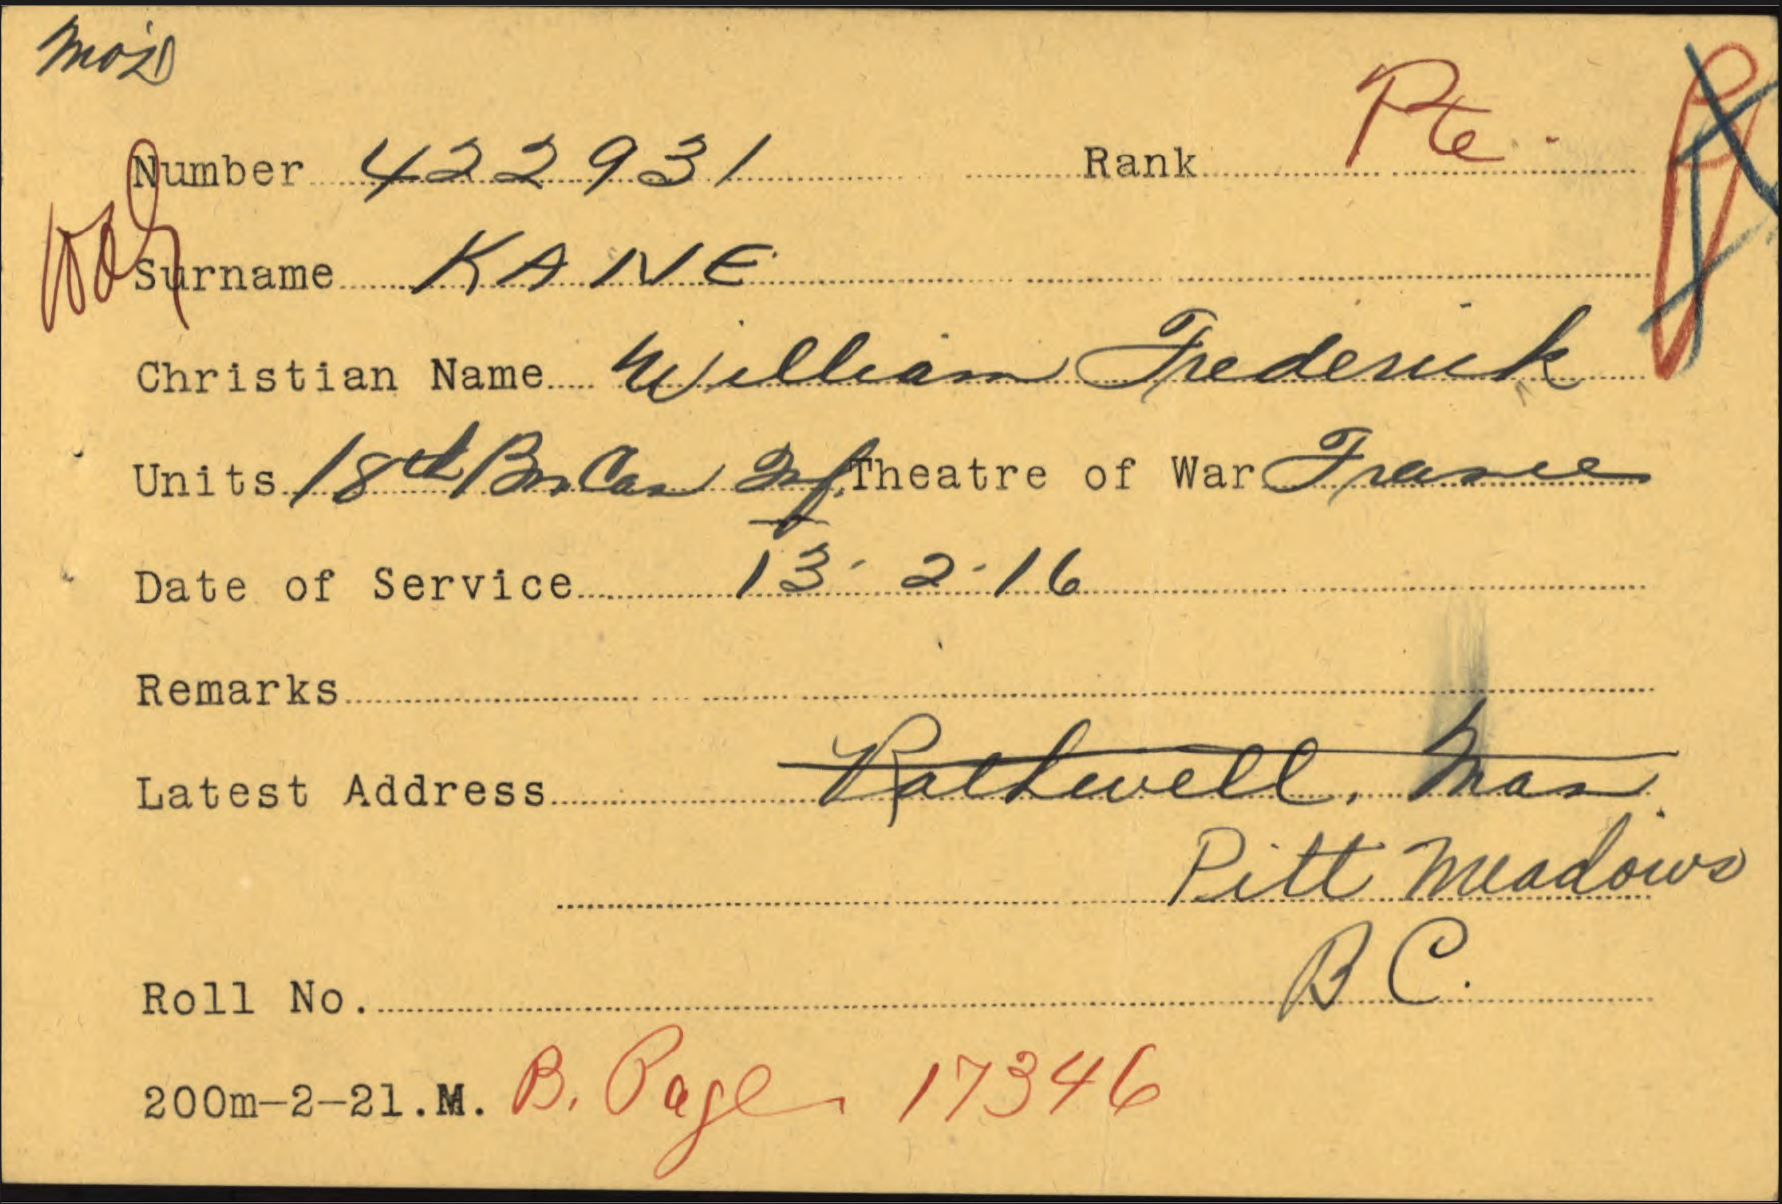 Number 422931 Rank Pte.
Surname KANE
Christian Name William Frederick
Units 18th Bn Can Inf. Theatre of War France
Date of Service 13·2·16
Remarks
Latest Address Rathwell, Man
Pitt Meadows
B C.
Roll No.
200m-2-21.M. B. Page 17346